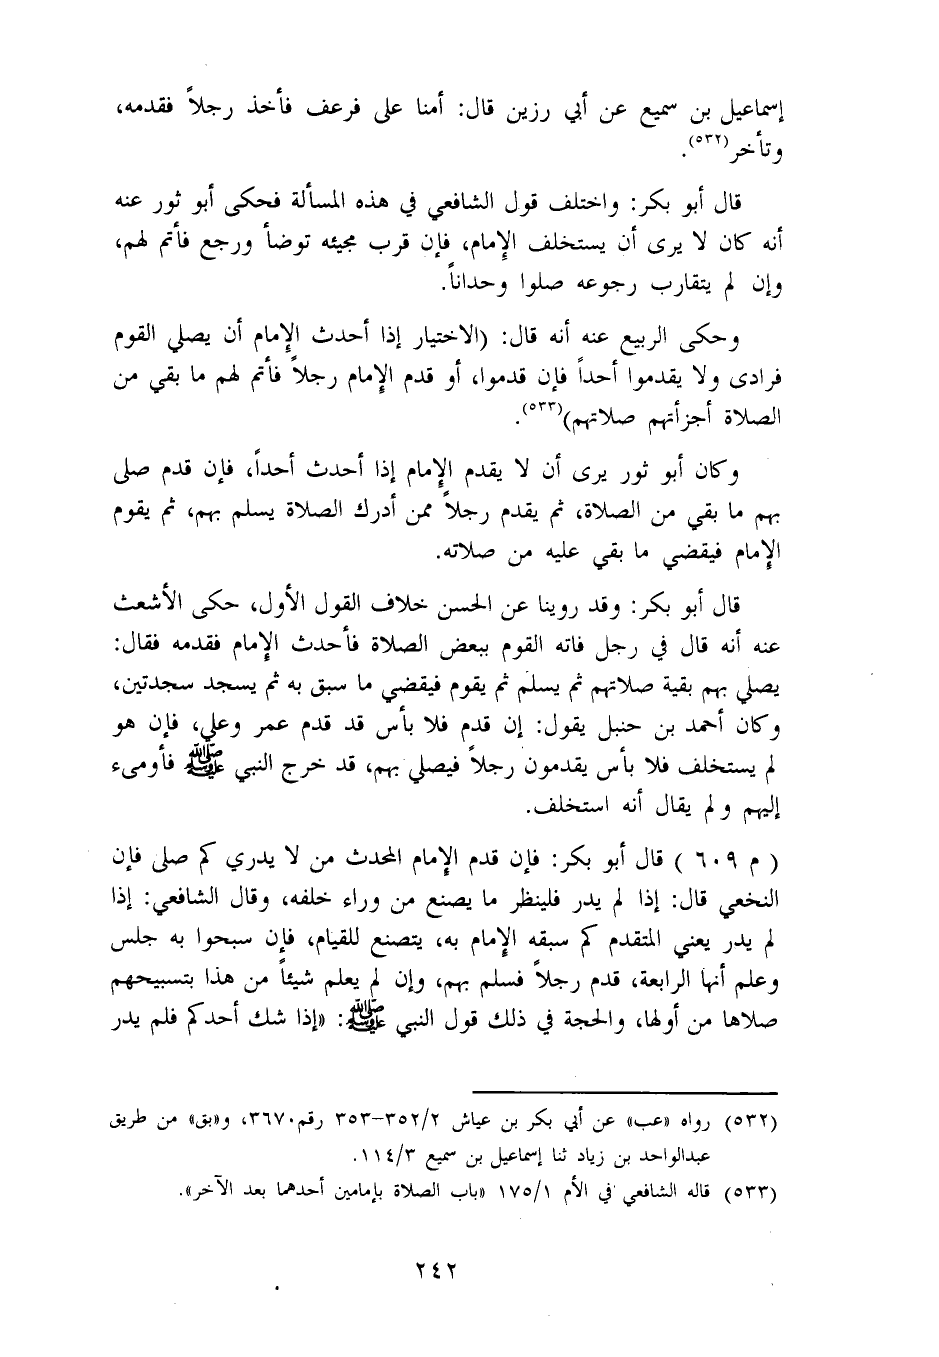 إسماعيل بن سميع عن أبي رزين قال: أمنا علي فرعف فأخذ رجلاً فقدمه،
وتأخر(٥٣٢).
قال أبو بكر: واختلف قول الشافعي في هذه المسألة فحكى أبو ثور عنه
أنه كان لا يرى أن يستخلف الإمام، فإن قرب مجيئه توضأ ورجع فأتم لهم،
وإن لم يتقارب رجوعه صلوا وحداناً.
وحكى الربيع عنه أنه قال: (الاختيار إذا أحدث الإمام أن يصلي القوم
فرادى ولا يقدموا أحداً فإن قدموا، أو قدم الإمام رجلاً فأتم لهم ما بقي من
الصلاة أجزأتهم صلاتهم)(٥٣٣).
وكان أبو ثور يرى أن لا يقدم الإمام إذا أحدث أحداً، فإن قدم صلى
بهم ما بقي من الصلاة، ثم يقدم رجلاً ممن أدرك الصلاة يسلم بهم، ثم يقوم
الإمام فيقضي ما بقي عليه من صلاته.
قال أبو بكر: وقد روينا عن الحسن خلاف القول الأول، حكى الأشعث
عنه أنه قال في رجل فاته القوم ببعض الصلاة فأحدث الإمام فقدمه فقال:
يصلي بهم بقية صلاتهم ثم يسلم ثم يقوم فيقضي ما سبق به ثم يسجد سجدتين،
وكان أحمد بن حنبل يقول: إن قدم فلا بأس قد قدم عمر وعلي، فإن هو
لم يستخلف فلا بأس يقدمون رجلاً فيصلي بهم، قد خرج النبي ﷺ فأومىء
إليهم ولم يقال أنه استخلف.
( م ٦٠٩ ) قال أبو بكر: فإن قدم الإمام المحدث من لا يدري كم صلى فإن
النخعي قال: إذا لم يدر فلينظر ما يصنع من وراء خلفه، وقال الشافعي: إذا
لم يدر يعني المتقدم كم سبقه الإمام به، يتصنع للقيام، فإن سبحوا به جلس
وعلم أنها الرابعة، قدم رجلاً فسلم بهم، وإن لم يعلم شيئاً من هذا بتسبيحهم
صلاها من أولها، والحجة في ذلك قول النبي ﷺ: «إذا شك أحدكم فلم يدر
(٥٣٢) رواه «عب» عن أبي بكر بن عياش ٣٥٢/٢–٣٥٣ رقم ٣٦٧٠، و«بق» من طريق
عبدالواحد بن زياد ثنا إسماعيل بن سميع ١١٤/٣.
(٥٣٣) قاله الشافعي في الأم ١٧٥/١ «باب الصلاة بإمامين أحدهما بعد الآخر».
٢٤٢